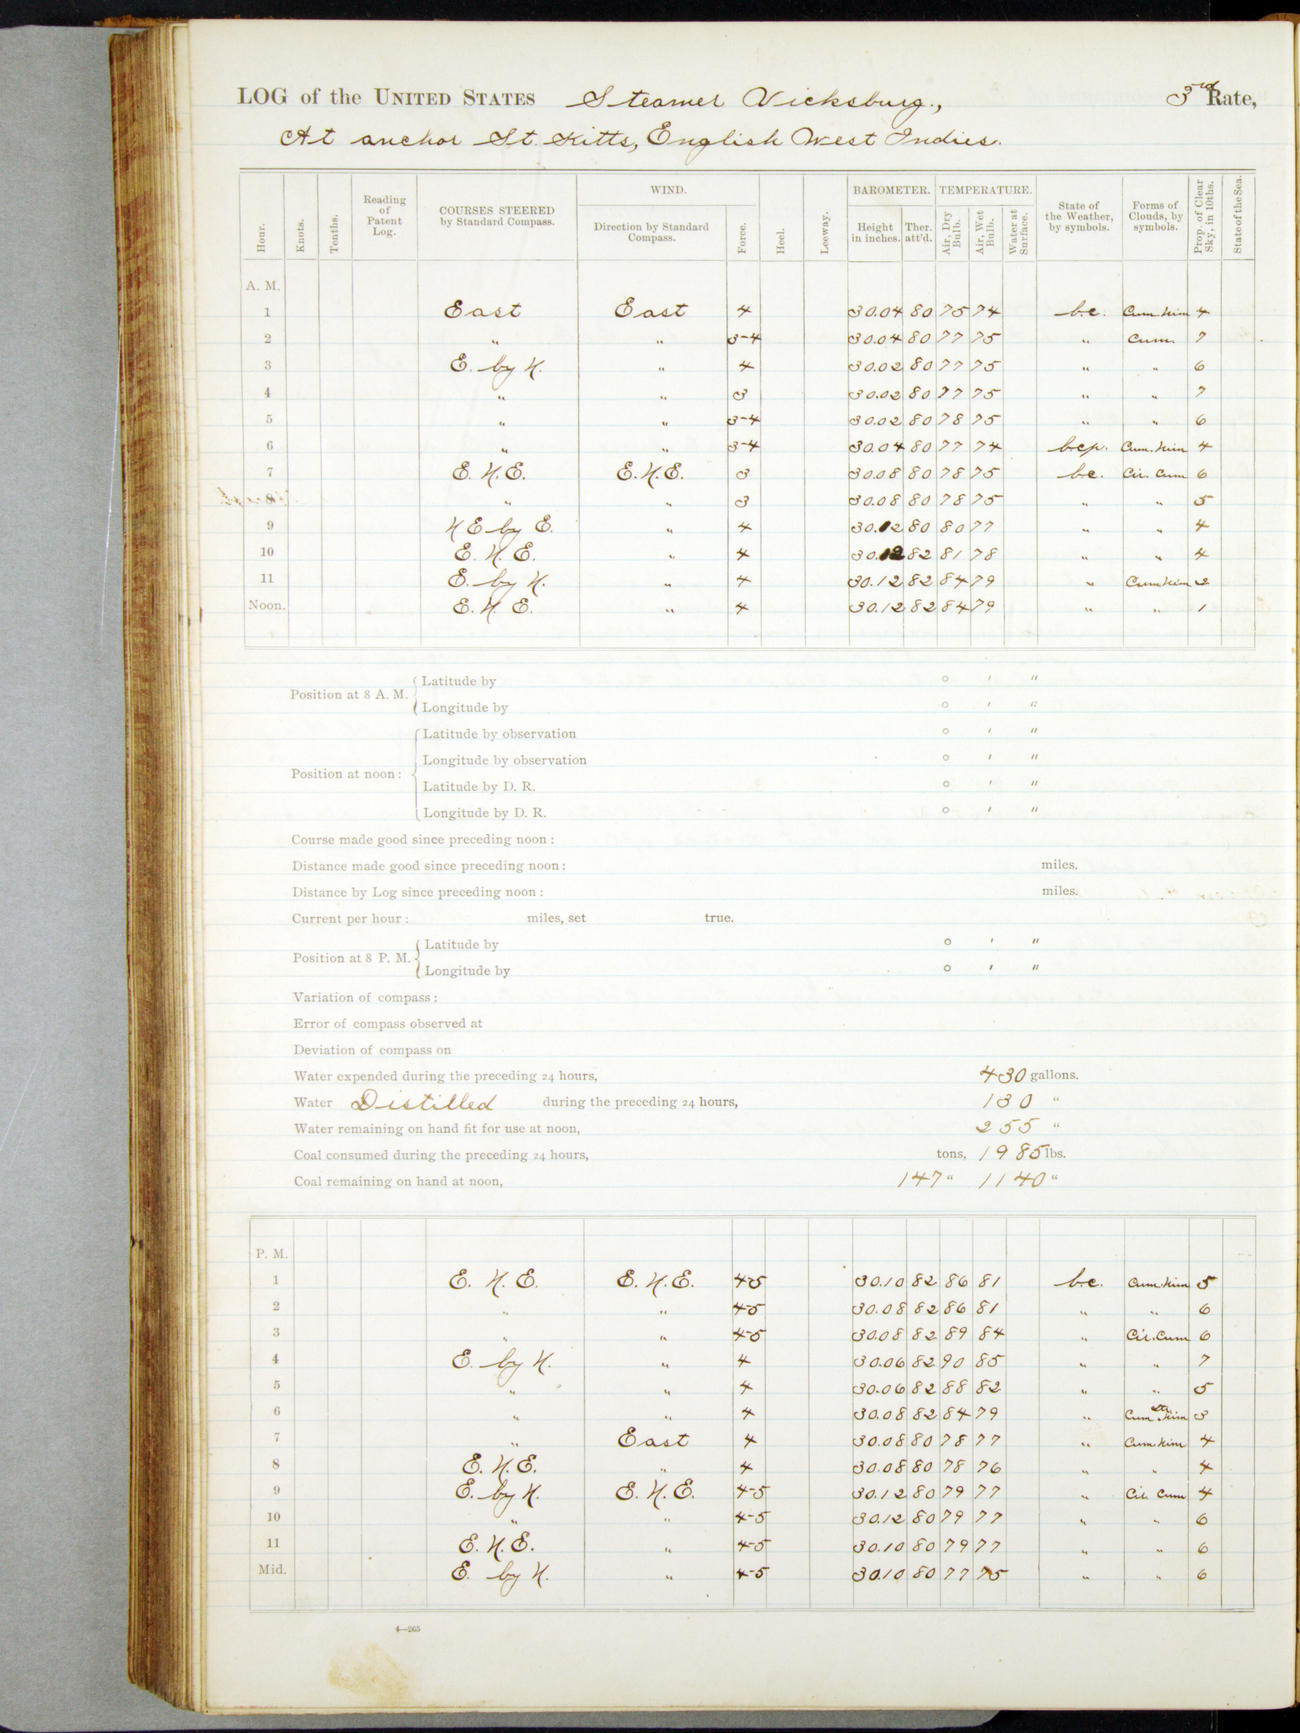 LOG of the UNITED STATES Steamer Vicksburg., 3rd Rate,
At anchor St. Kitts, English West Indies.
Hour. Knots. Tenths. Reading of Patent Log. COURSES STEERED by Standard Compass. WIND. Direction by Standard Compass. Force. Heel. Leeway. BAROMETER. Height in inches. Ther. att'd. TEMPERATURE. Air, Dry Bulb. Air, Wet Bulb. Water at Surface. State of the Weather, by symbols. Forms of Clouds, by symbols. Prop. of Clear Sky, in 10ths. State of the Sea.
A. M.
1 East East 4 30.04 80 75 74 b.c. Cum. Nim 4
2 " " 3-4 30.04 80 77 75 " Cum. 7
3 E. by N. " 4 30.02 80 77 75 " " 6
4 " " 3 30.02 80 77 75 " " 7
5 " " 3-4 30.02 80 78 75 " " 6
6 " " 3-4 30.04 80 77 74 b.c.p. Cum. Nim 4
7 E. N. E. E. N. E. 3 30.08 80 78 75 b.c. Cir. Cum 6
8 " " 3 30.08 80 78 75 " " 5
9 N E by E. " 4 30.12 80 80 77 " " 4
10 E. N. E. " 4 30.12 82 81 78 " " 4
11 E. by N. " 4 30.12 82 84 79 " Cum Nim 2
Noon. E. N. E. " 4 30.12 82 84 79 " " 1
Position at 8 A. M. Latitude by ° ′ ″
Longitude by ° ′ ″
Position at noon: Latitude by observation ° ′ ″
Longitude by observation ° ′ ″
Latitude by D. R. ° ′ ″
Longitude by D. R. ° ′ ″
Course made good since preceding noon:
Distance made good since preceding noon: miles.
Distance by Log since preceding noon: miles.
Current per hour: miles, set true.
Position at 8 P. M. Latitude by ° ′ ″
Longitude by ° ′ ″
Variation of compass:
Error of compass observed at
Deviation of compass on
Water expended during the preceding 24 hours, 430 gallons.
Water Distilled during the preceding 24 hours, 130 "
Water remaining on hand fit for use at noon, 255 "
Coal consumed during the preceding 24 hours, tons, 1985 lbs.
Coal remaining on hand at noon, 147 " 1140 "
P. M.
1 E. N. E. E. N. E. 4-5 30.10 82 86 81 b.c. Cum. Nim 5
2 " " 4-5 30.08 82 86 81 " " 6
3 " " 4-5 30.08 82 89 84 " Cir. Cum 6
4 E. by N. " 4 30.06 82 90 85 " " 7
5 " " 4 30.06 82 88 82 " " 5
6 " " 4 30.08 82 84 79 " Cum Nim 3
7 " East 4 30.08 80 78 77 " Cum. Nim 4
8 E. N. E. " 4 30.08 80 78 76 " " 4
9 E. by N. E. N. E. 4-5 30.12 80 79 77 " Cir. Cum 4
10 " " 4-5 30.12 80 79 77 " " 6
11 E. N. E. " 4-5 30.10 80 79 77 " " 6
Mid. E. by N. " 4-5 30.10 80 77 75 " " 6
4—265